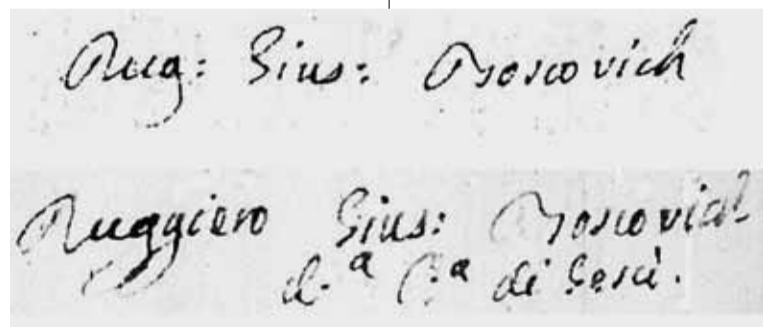 Rug: Gius: Boscovich
Ruggiero Gius: Boscovich
d.ª C.ª di Gesù.